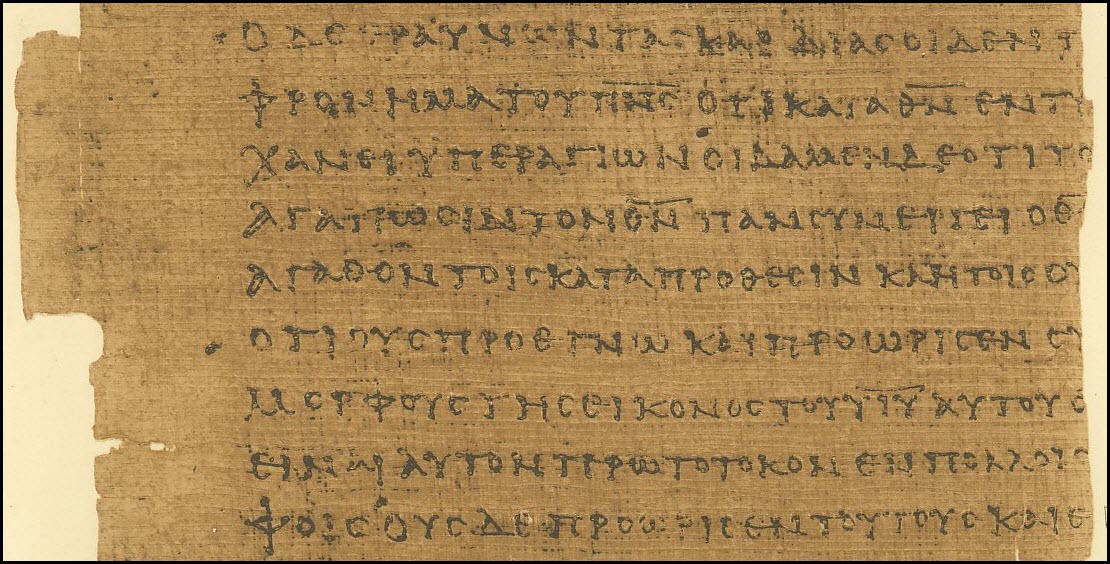 Ο ΔΕ ΕΡΑΥΝΩΝ ΤΑΣ ΚΑΡΔΙΑΣ ΟΙΔΕΝ Τ
ΦΡΟΝΗΜΑ ΤΟΥ Π̅Ν̅Σ̅ ΟΤΙ ΚΑΤΑ Θ̅Ν̅ ΕΝΤΥ
ΧΑΝΕΙ ΥΠΕΡ ΑΓΙΩΝ ΟΙΔΑΜΕΝ ΔΕ ΟΤΙ ΤΟ
ΑΓΑΠΩΣΙΝ ΤΟΝ Θ̅Ν̅ ΠΑΝ ΣΥΝΕΡΓΕΙ Ο Θ̅
ΑΓΑΘΟΝ ΤΟΙΣ ΚΑΤΑ ΠΡΟΘΕΣΙΝ ΚΛΗΤΟΙΣ ΟΥ
ΟΤΙ ΟΥΣ ΠΡΟΕΓΝΩ ΚΑΙ ΠΡΟΩΡΙΣΕΝ ΣΥ
ΜΟΡΦΟΥΣ ΤΗΣ ΕΙΚΟΝΟΣ ΤΟΥ Υ̅Ι̅Υ̅ ΑΥΤΟΥ Ε
ΕΙΝΑΙ ΑΥΤΟΝ ΠΡΩΤΟΤΟΚΟΝ ΕΝ ΠΟΛΛΟΙΣ
ΦΟΙΣ ΟΥΣ ΔΕ ΠΡΟΩΡΙΣΕΝ ΤΟΥΤΟΥΣ ΚΑΙ Ε